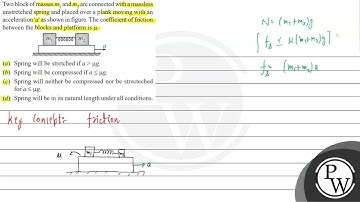 Two block of masses m₁ and m₂ are connected with a massless
unstretched spring and placed over a plank moving with an
acceleration 'a' as shown in figure. The coefficient of friction
between the blocks and platform is μ.
m₁ m₂
(a) Spring will be stretched if a > μg.
(b) Spring will be compressed if a ≤ μg.
(c) Spring will neither be compressed nor be stretched
for a ≤ μg.
(d) Spring will be in its natural length under all conditions.
Key concept:- friction
μ m₁ m₂ a
N = (m₁+m₂)g
[ fs ≤ μ(m₁+m₂)g ] =
fs = (m₁+m₂)a
PW
PW